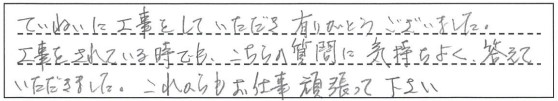 ていねいに工事をしていただき有りがとうございました。
工事をされている時でも、こちらの質問に気持ちよく、答えて
いただきました。これからもお仕事頑張って下さい